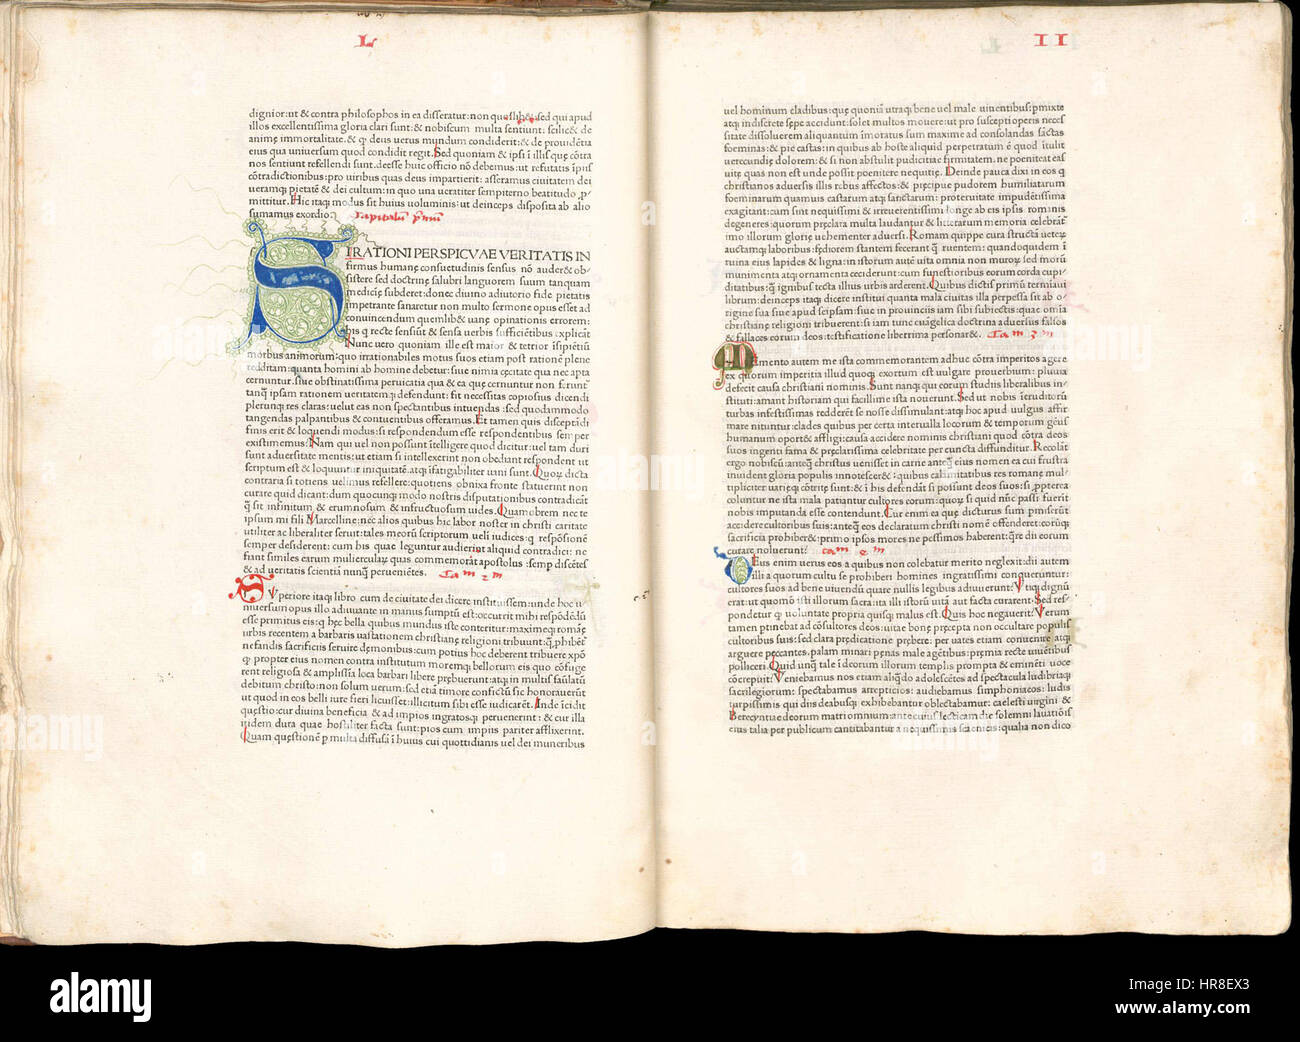 L
digniorut & contra philosophos in ea disseratur: non quoslibet sed qui apud
illos excellentissima gloria clari sunt: & nobiscum multa sentiunt: scilicet & de
animę immortalitate: & ꝙ deus uerus mundum condiderit: & de prouidētia
eius qua uniuersum quod condidit regit. Sed quoniam & ipsi ī illis quę cōtra
nos sentiunt refellendi sunt. deesse huic officio nō debemus: ut refutatis īpiis
cōtradictionibus: pro uiribus quas deus impartierit: asseramus ciuitatem dei
ueramq; pietatē & dei cultum: in quo una ueraciter sempiterno beatitudo
mittitur. Hic itaq; modus sit huius uoluminis: ut deinceps disposita ab alio
sumamus exordio.
Capitulum primum
SI RATIONI PERSPICVAE VERITATIS IN
firmus humanę cōsuetudinis sensus nō auderet ob
sistere sed doctrinę salubri languorem suum tanquam
medicinę subderet: donec diuino adiutorio fide pietatis
impetrante sanaretur non multo sermone opus esset ad
conuincendum quemlibet uanę opinationis errorem:
his q recte sentiūt & sensa uerbis sufficiētibus explicāt
Nunc uero quoniam ille est maior & tetrior īsipiētiū
morbus animorum: quo irrationabiles motus suos etiam post rationē plene
redditam: quanta homini ab homine debetur: siue nimia cęcitate qua nec apta
cernuntur. siue obstinatissima peruicatia qua & ea quę cernuntur non ferunt
tanq̄ ipsam rationem ueritatemq; defendunt: fit necessitas copiosius dicendi
plerunq; res claras: uelut eas non spectantibus intuendas: sed quodammodo
tangendas palpantibus & contuentibus offeramus. Et tamen quis disceptādi
finis erit & loquendi modus: si respondendum esse respondentibus semper
existimemus: Nam qui uel non possunt ītelligere quod dicitur: uel tam duri
sunt aduersitate mentis: ut etiam si intellexerint non obediant respondent ut
scriptum est & loquuntur iniquitatē. atq; īfatigabiliter uani sunt. Quoꝝ dicta
contraria si totiens uelimus refellere: quotiens obnixa fronte statuerint non
curare quid dicant: dum quocunq; modo nostris disputationibus contradicāt
q̄ sit infinitum & erumnosum & infructuosum uides. Quamobrem nec te
ipsum mi fili Marcelline: nec alios quibus hic labor noster in christi caritate
utiliter ac liberaliter seruit: tales meorū scriptorum ueli iudices: q respōsionē
semper desiderent: cum his quae leguntur audierint aliquid contradici: ne
fiant similes earum muliercularꝝ quas commemorat apostolus: semp discētes
& ad ueritatis scientiā nunq̄ perueniētes.
Cam 2m
SVperiore itaq; libro cum de ciuitate dei dicere instituissem: unde hoc u
niuersum opus illo adiuuante in manus sumptū est: occurrit mihi respōdēdū
esse primitus eis: q hęc bella quibus mundus iste conteritur: maximeq; romāę
urbis recentem a barbaris uastationem christianę religioni tribuunt: q; phibēt
nefandis sacrificiis seruire dęmonibus: cum potius hoc deberent tribuere xpō
ꝙ propter eius nomen contra institutum moremq; bellorum eis quo cōfuge
rent religiosa & amplissīa loca barbari libere pręberent: atq; in multis faulatū
debitum christo: non solum uerum: sed etiā timore confictū sic honorauerūt
ut quod in eos belli iure fieri licuisset: illicitum sibi esse iudicarēt. Inde īcidit
quęstio: cur diuina beneficia & ad impios ingratosq; peruenerint: & cur illa
itidem dura quae hostiliter facta sunt: pios cum impiis pariter afflixerint.
Quam quęstionē p multa diffusā ī huius cui quottidianis uel dei muneribus
II
uel hominum cladibus: quę quoniā utraq; bene uel male uiuentibus: pmixte
atq; indiscrete sępe accidunt: solet multos mouere: ut pro suscepti operis neces
sitate dissoluerem aliquantum īmoratus sum maxime ad consolandas sāctas
foeminas: & pie castas: in quibus ab hoste aliquid perpetratum ē quod ītulit
uerecundię dolorem: & si non abstulit pudicitiae firmitatem. ne poeniteat eas
uitę quas non est unde possit poenitere nequitię. Deinde pauca dixi in eos q
christianos aduersis illis rebus affectos: & pręcipue pudorem humiliatarum
foeminarum quamuis castarum atq; sanctarum: proteruitate impudētissima
exagitant: cum sint nequissimi & irreuerentissimi longe ab eis ipsis romanis
degeneres: quorum pręclara multa laudantur & litterarum memoria celebrāt
imo illorum glorię uehementer aduersi. Romam quippe cura structā ueterꝝ
auctamq; laboribus: fędiorem stantem fecerant q̄ ruentem: quandoquidem ī
ruina eius lapides & ligna: in istorum autē uita omnia non muroꝝ sed morū
munimenta atq; ornamenta ceciderunt: cum funestioribus eorum corda cupi
ditatibus: q̄ ignibus tecta illius urbis arderent. Quibus dictis primū terminaui
librum: deinceps itaq; dicere institui quanta mala ciuitas illa perpessa sit ab o
rigine sua siue apud seipsam: siue in prouinciis iam sibi subiectis: quae omia
christianę religioni tribuerent: si iam tunc euāgelica doctrina aduersus falsos
& fallaces eorum deos: testificatione liberrima personaret.
Cam 3m
MEmento autem me ista commemorantem adhuc cōtra imperitos agere
ex quorum imperitia illud quoq; exortum est uulgare prouerbium: pluuia
defecit causa christiani nominis. Sunt nanq; qui eorum studiis liberalibus in
stituti: amant historiam qui facillime ista nouerunt. Sed ut nobis īeruditorū
turbas infestissimas redderēt se nosse dissimulant: atq; hoc apud uulgus affir
mare nituntur: clades quibus per certa interualla locorum & temporum genus
humanum oportet affligi: causa accidere nominis christiani quod cōtra deos
suos ingenti fama & pręclarissima celebritate per cuncta diffunditur. Recolāt
ergo nobiscū: anteq̄ christus uenisset in carne anteq̄ eius nomen ea cui frustra
inuident gloria populis innotesceret: quibus calamitatibus res romanę mul
tipliciter uarieq; cōtritę sunt: & ī his defendāt si possunt deos suos: si ppterea
coluntur ne ista mala patiantur cultores eorum: quoꝝ si quid nūc passi fuerit
nobis imputanda esse contendunt. Cur enim ea quę dicturus sum pmiserūt
accidere cultoribus suis: anteq̄ eos declaratum christi nomē offenderet: eorūq;
sacrificia prohiberet: primo ipsos mores ne pessimos haberent: quęre dii eorum
curare noluerunt?
Cam 4m
DEus enim uerus eos a quibus non colebatur merito neglexit: dii autem
illi a quorum cultu se prohiberi homines ingratissimi conqueruntur:
cultores suos ad bene uiuendū quare nullis legibus adiuuerunt: Vtiq; dignū
erat: ut quomō isti illorum sacra: ita illi istorū uitā aut facta curarent. Sed res
pondetur ꝙ uoluntate propria quisq; malus est. Quis hoc negauerit: Verum
tamen ptinebat ad cōsultores deos: uitae bonę pręcepta non occultare populis
cultoribus suis: sed clara prędicatione pręberet: per uates etiam conuenire atq;
arguere peccantes. palam minari pęnas male agētibus: pręmia recte uiuētibus
polliceri. Quid unq̄ tale ī deorum illorum templis prompta & eminēti uoce
cōcrepuit: Veniebamus nos etiam aliqdo adolescētes ad spectacula ludibriaq;
sacrilegiorum: spectabamus arrepticios: audiebamus simphoniacos: ludis
turpissimis qui diis deabusq; exhibebantur oblectabamur: caelesti uirgini &
Berecyntiae deorum matri omnium: ante cuius lecticam die solemni lauatiōis
eius talia per publicum cantitabantur a nequissimis scaenicis: qualia non dico
alamy
HR8EX3
www.alamy.com